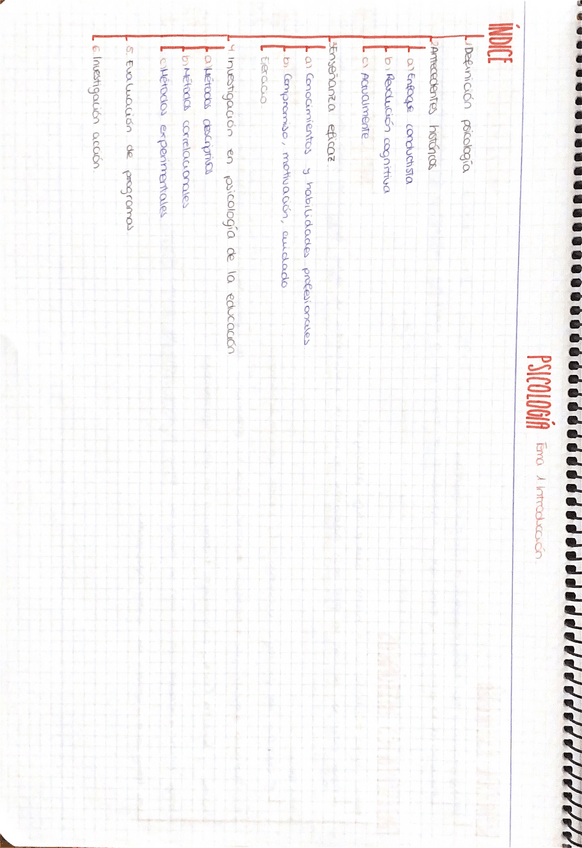 PSICOLOGÍA Tema 1 Introducción
ÍNDICE
1 Definición psicología
2 Antecedentes históricos
a) Enfoque conductista
b) Revolución cognitiva
c) Actualmente
3 Enseñanza eficaz
a) Conocimientos y habilidades profesionales
b) Compromiso, motivación, cuidado
4 Investigación en psicología de la educación
a) Métodos descriptivos
b) Métodos correlacionales
c) Métodos experimentales
5. Evaluación de programas
6 Investigación acción